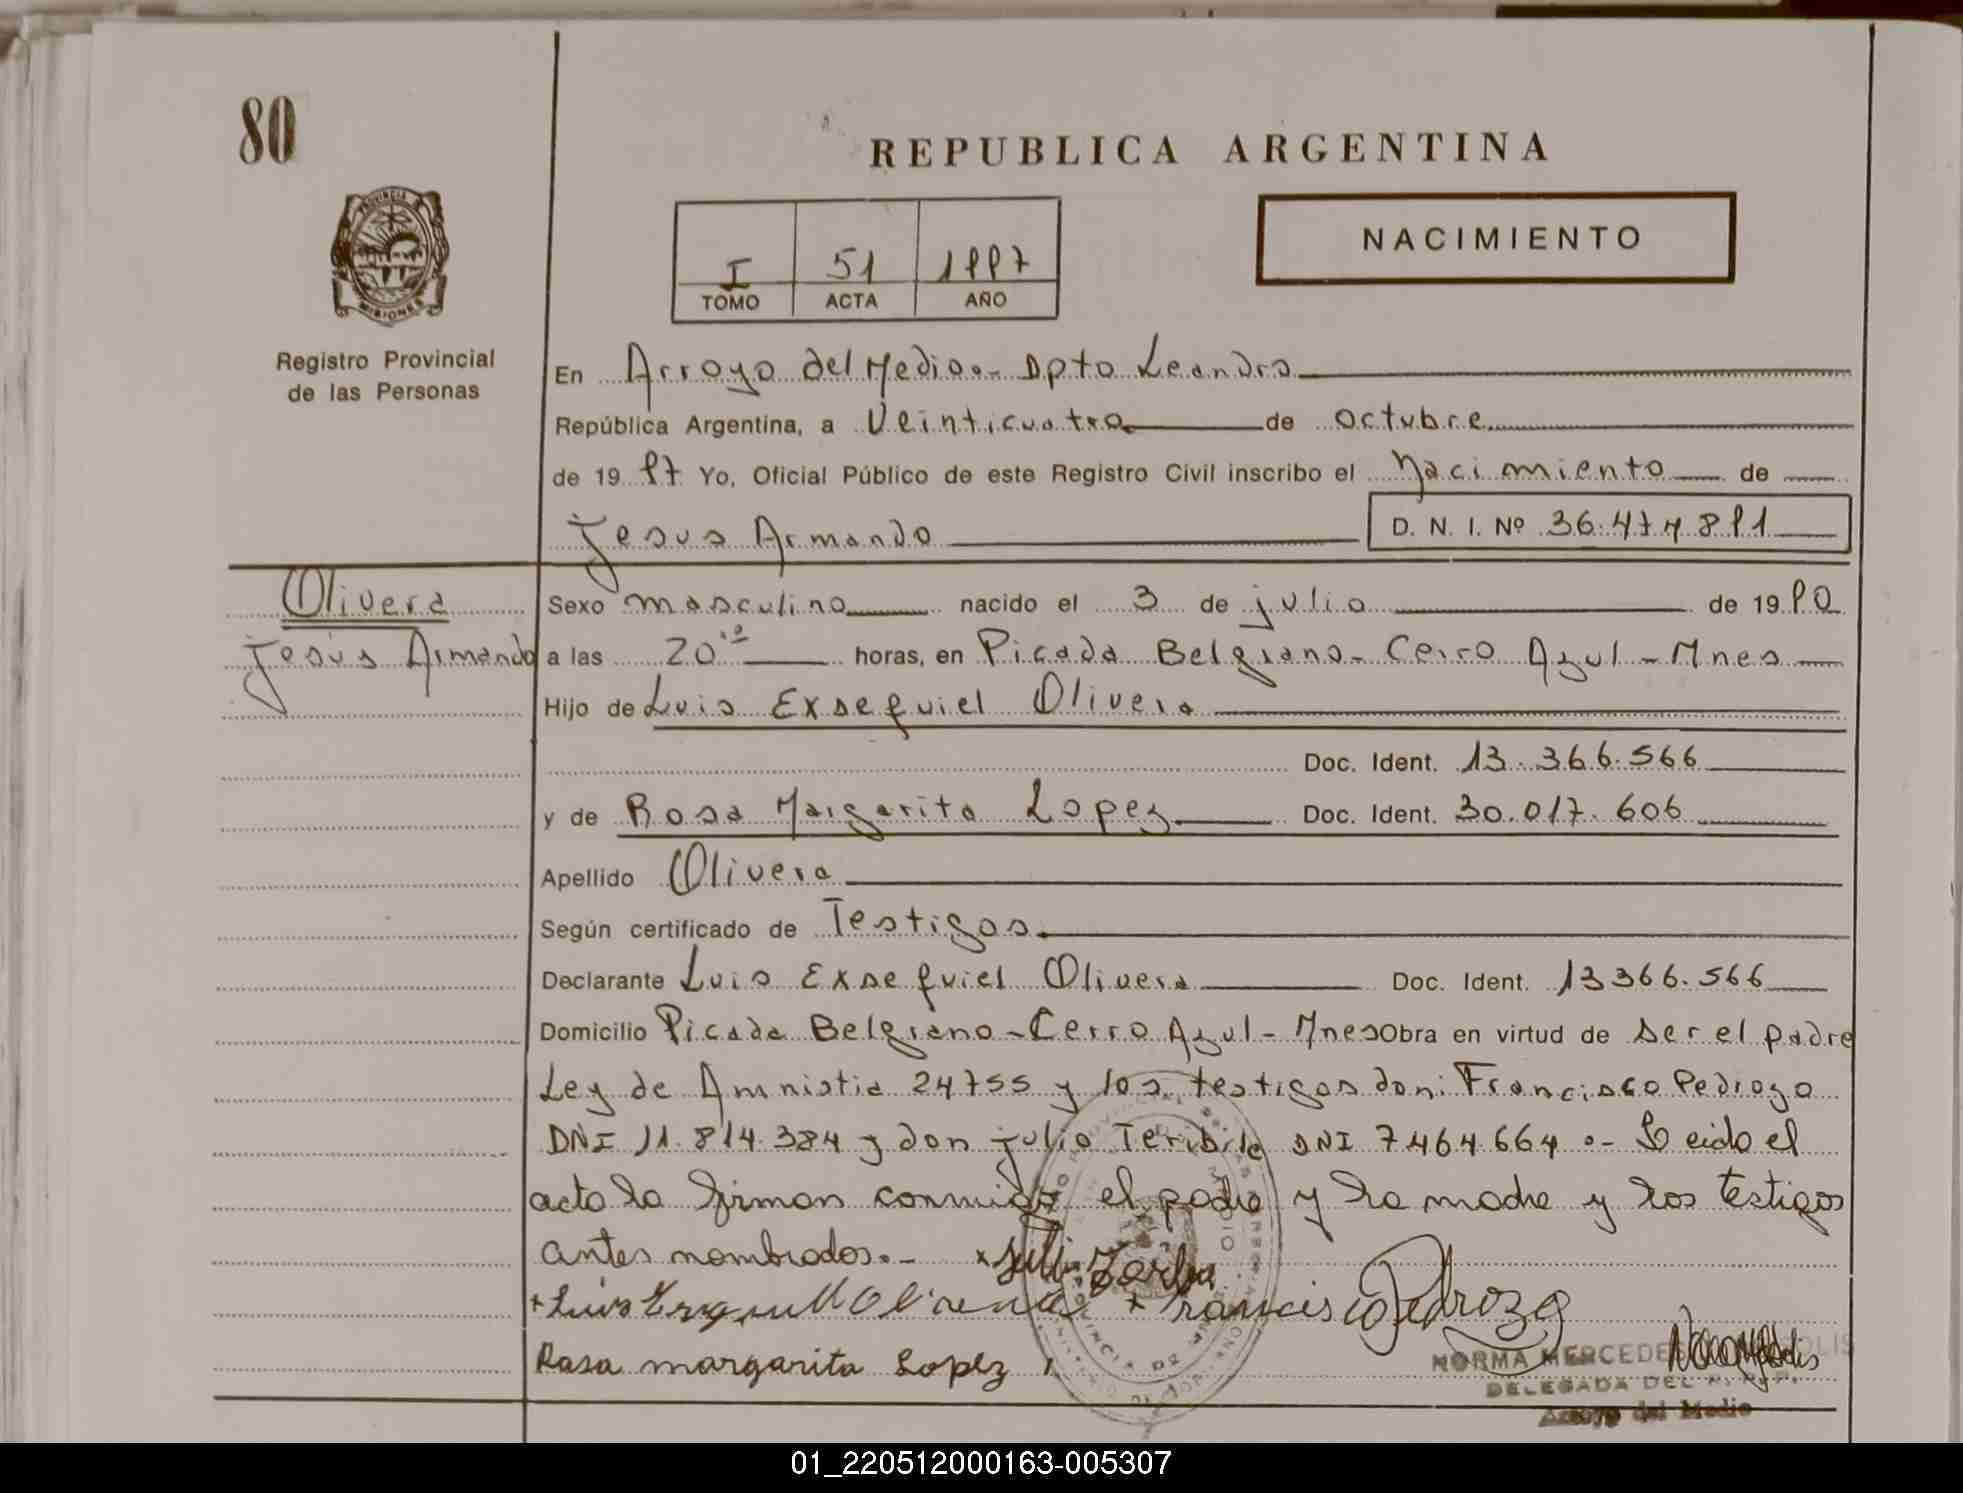 80
REPUBLICA ARGENTINA
NACIMIENTO
I 51 1997
TOMO ACTA AÑO
PROVINCIA DE
MISIONES
Registro Provincial
de las Personas
En Arroyo del Medio.- Dpto Leandro
República Argentina, a Veinticuatro de octubre
de 1997 Yo, Oficial Público de este Registro Civil inscribo el Nacimiento de
Jesus Armando D. N. I. Nº 36.474.891
Olivera
Jesús Armando
Sexo masculino nacido el 3 de julio de 1990
a las 20 horas, en Picada Belgrano - Cerro Azul - Mnes
Hijo de Luis Exsequiel Olivera
Doc. Ident. 13.366.566
y de Rosa Margarita Lopez Doc. Ident. 30.017.606
Apellido Olivera
Según certificado de Testigos.
Declarante Luis Exsequiel Olivera Doc. Ident. 13366.566
Domicilio Picada Belgrano - Cerro Azul - Mnes Obra en virtud de ser el padre
Ley de Amnistia 24755 y los testigos don: Francisco Pedrozo
DNI 11.814.384 y don julio DNI 7464.664.- Leido el
acta la firman conmigo el padre y la madre y los testigos
antes nombrados.-
+ Luis Olivera + Francisco Pedrozo
Rosa margarita Lopez
NORMA MERCEDES
DELEGADA DEL R. P. P.
Arroyo del Medio
01_220512000163-005307